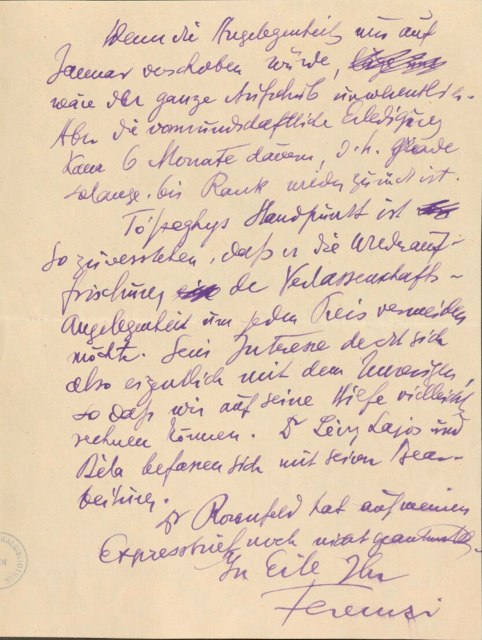 Wenn die Angelegenheit nur auf
Januar verschoben würde,
wäre der ganze Aufschub unwesentlich.
Aber die vormundschaftliche Erledigung
kann 6 Monate dauern, d.h. gerade
solange, bis Rank wieder zurück ist.
Tószeghys Standpunkt ist
so zu verstehen, daß er die Wiederauf-
frischung der Verlassenschafts-
angelegenheit um jeden Preis vermeiden
möchte. Sein Interesse deckt sich
also eigentlich mit dem Unsrigen,
so daß wir auf seine Hilfe vielleicht
rechnen können. Dr Lévy Lajos und
Béla befassen sich mit seiner Bear-
beitung.
Dr Rosenfeld hat auf meinen
Expressbrief noch nicht geantwortet.
In Eile Ihr
Ferenczi